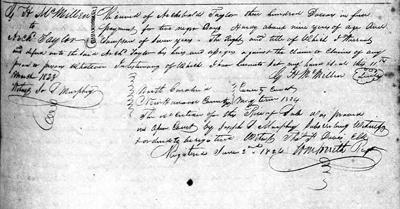 G H McMillen
to
Arch. Taylor
Received of Archibald Taylor three hundred Dollars in full
payment for two negro Boys Harry about nine years of age And
Sampson of seven years. The Right and title of Which I Warrant
and defend unto the said Arch Taylor his heirs and assigns against the claim or claims of any
person or persons Whatever In testimony of Which I have hereunto set my hand & seal this 11th
March 1824
G H McMillen
Witness Jos S Murphy
North Carolina
New Hanover County
County Court
May term 1824
The execution of this Bill of Sale was proved
in Open Court by Joseph S. Murphy Subscribing Witness
& ordered to be registered
Registered June 2nd 1824